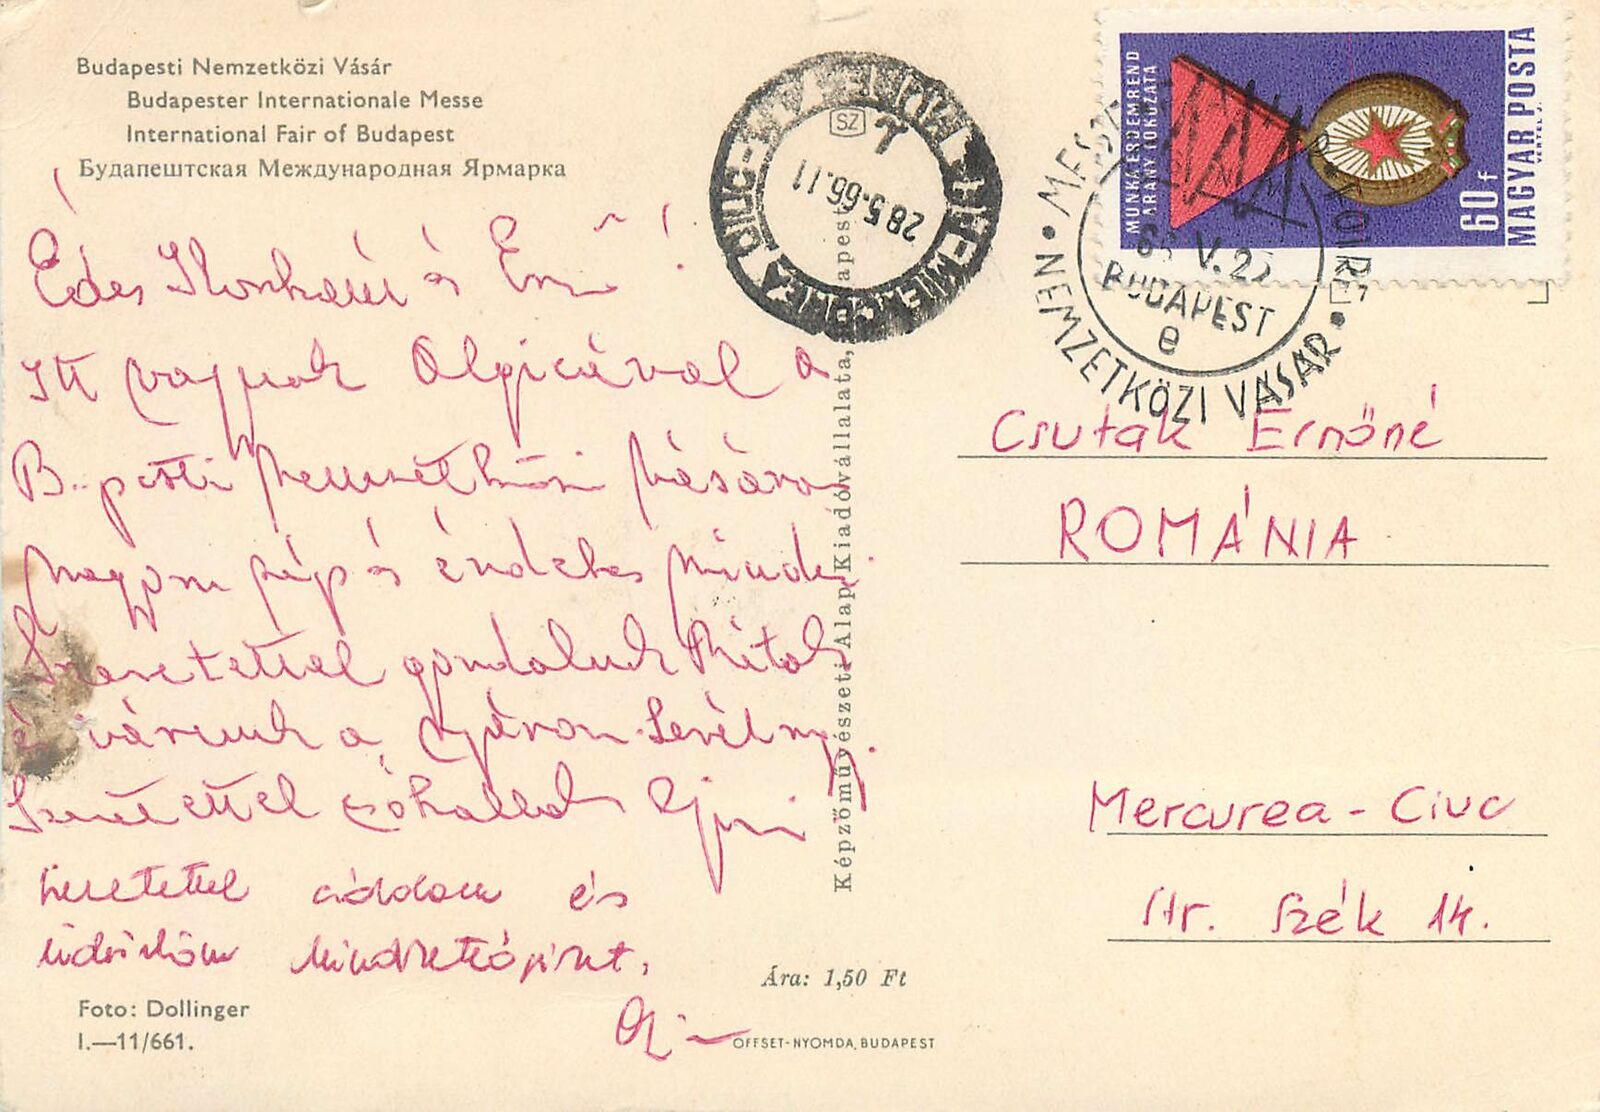 Budapesti Nemzetközi Vásár
Budapester Internationale Messe
International Fair of Budapest
Будапештская Международная Ярмарка
Édes Ilonkám és Ernő!
Itt vagyunk Olgicával a
B.pesti Nemzetközi Vásáron
nagyon szép és érdekes minden.
Szeretettel gondolunk Rátok
és várunk a nyáron.
Szeretettel csókollak
szeretettel csókolom és
üdvözlöm mindkettőjüket,
Foto: Dollinger
I.—11/661.
Képzőművészeti Alap Kiadóvállalata, Budapest
Ára: 1,50 Ft
OFFSET-NYOMDA, BUDAPEST
SZ
28.5.66.11
MUNKAÉRDEMREND
ARANY FOKOZATA
60 f
MAGYAR POSTA
VERTEL J.
BUDAPEST
e
NEMZETKÖZI VÁSÁR
Csutak Ernőné
ROMÁNIA
Mercurea-Ciuc
Str. Szék 14.